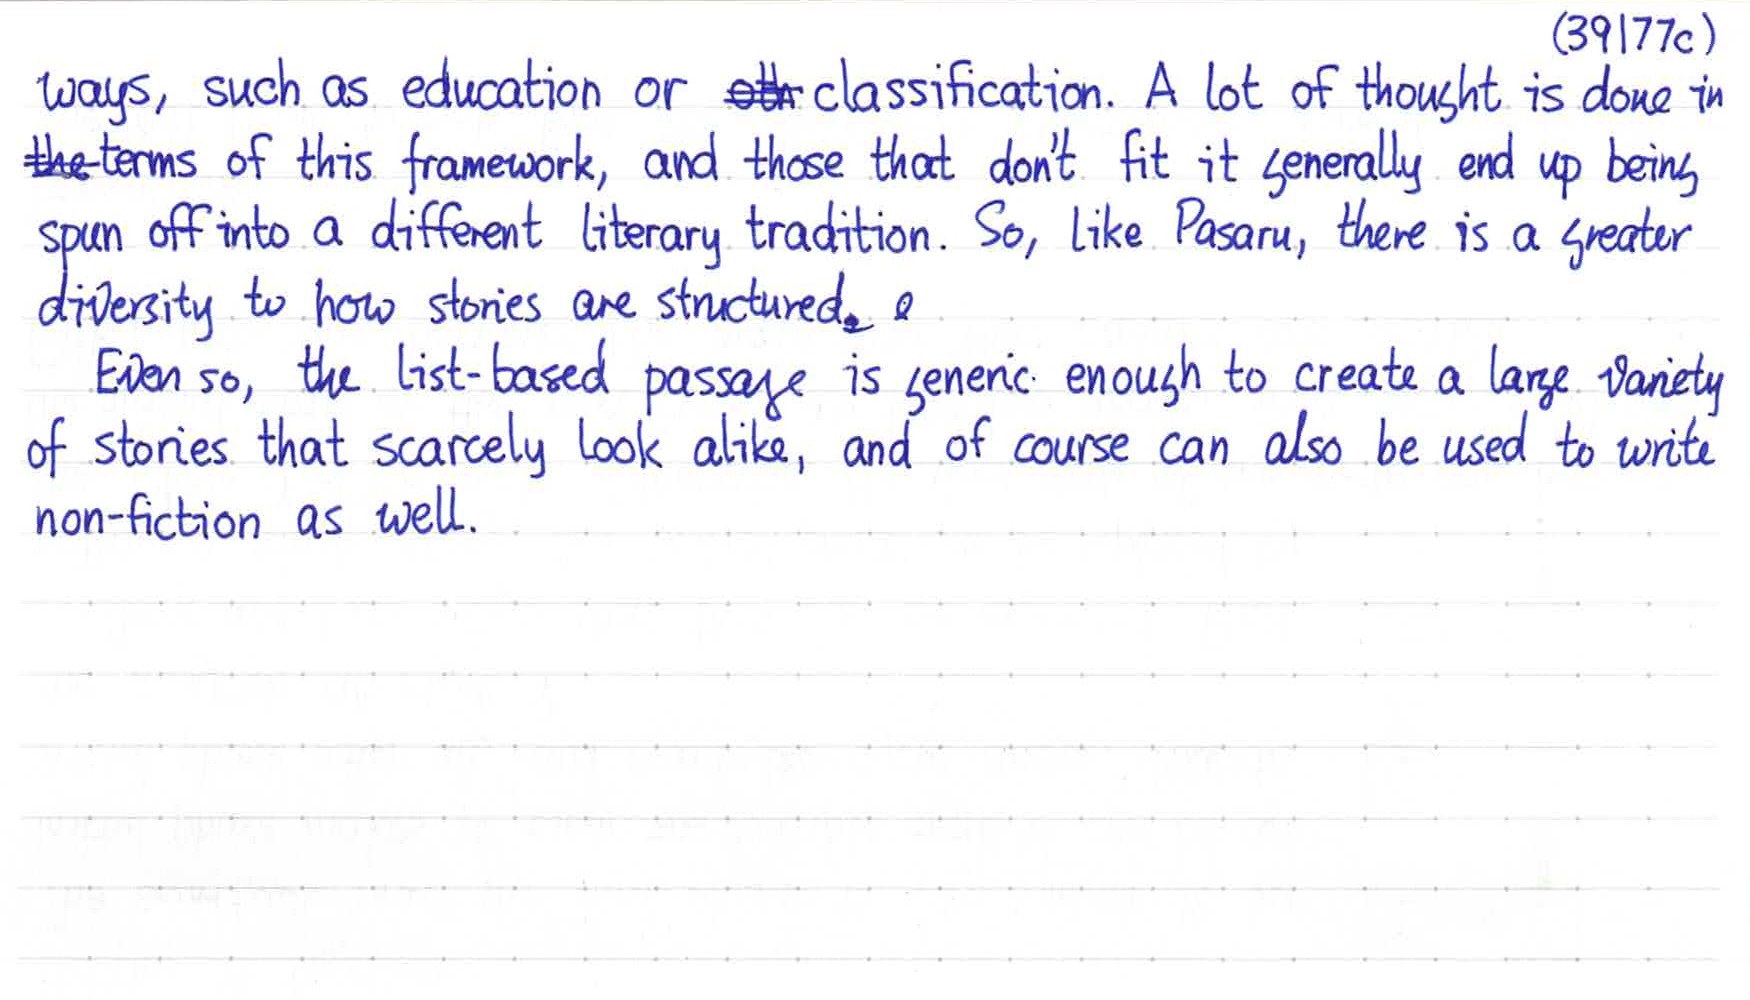 (39177c)
ways, such as education or classification. A lot of thought is done in
the terms of this framework, and those that don't fit it generally end up being
spun off into a different literary tradition. So, like Pasaru, there is a greater
diversity to how stories are structured.
Even so, the list-based passage is generic enough to create a large variety
of stories that scarcely look alike, and of course can also be used to write
non-fiction as well.